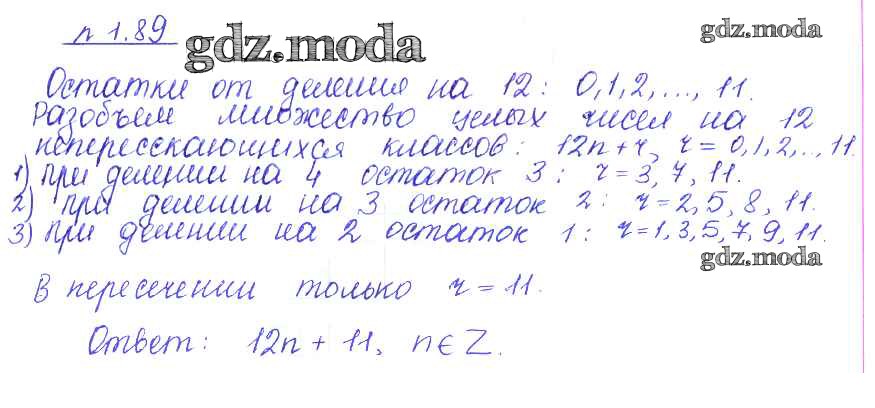 n 1.89
gdz.moda
gdz.moda
Остатки от деления на 12: 0,1,2,..., 11.
Разобъем множество целых чисел на 12
непересекающихся классов: 12n+r, r = 0,1,2,..,11.
1) при делении на 4 остаток 3: r = 3, 7, 11.
2) при делении на 3 остаток 2: r = 2, 5, 8, 11.
3) при делении на 2 остаток 1: r = 1, 3, 5, 7, 9, 11.
gdz.moda
В пересечении только r = 11.
Ответ: 12n + 11, n ∈ Z.